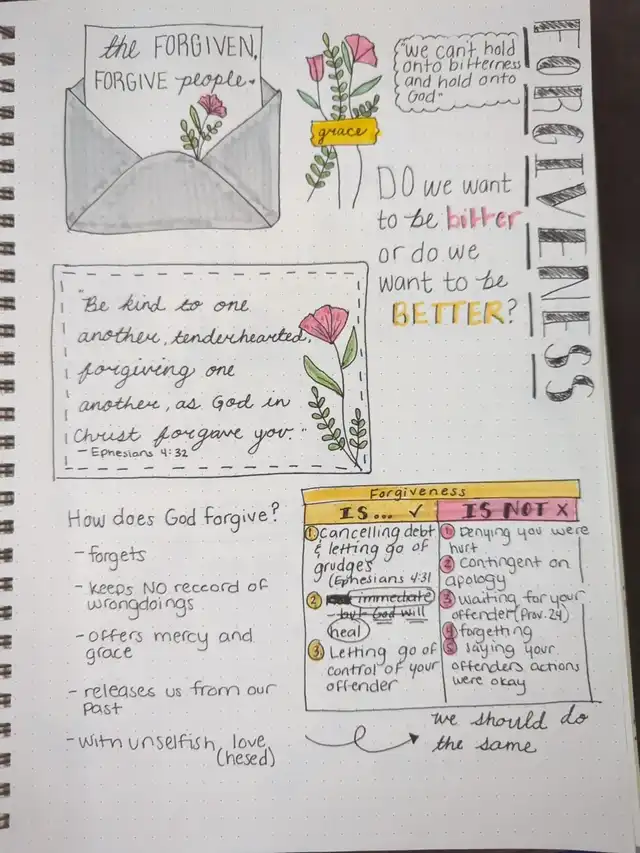 FORGIVENESS
the FORGIVEN,
FORGIVE people.
grace
"we can't hold
onto bitterness
and hold onto
God"
DO we want
to be bitter
or do we
want to be
BETTER?
"Be kind to one
another, tenderhearted,
forgiving one
another, as God in
Christ forgave you."
- Ephesians 4:32
How does God forgive?
- forgets
- keeps NO reccord of
wrongdoings
- offers mercy and
grace
- releases us from our
past
- with unselfish love
(hesed)
Forgiveness
IS... ✓
1 Cancelling debt
& letting go of
grudges
(Ephesians 4:31
2 immediate
- but God will
heal
3 Letting go of
control of your
offender
IS NOT X
1 Denying you were
hurt
2 contingent on
apology
3 waiting for your
offender (Prov. 24)
4 forgetting
5 saying your
offenders actions
were okay
we should do
the same